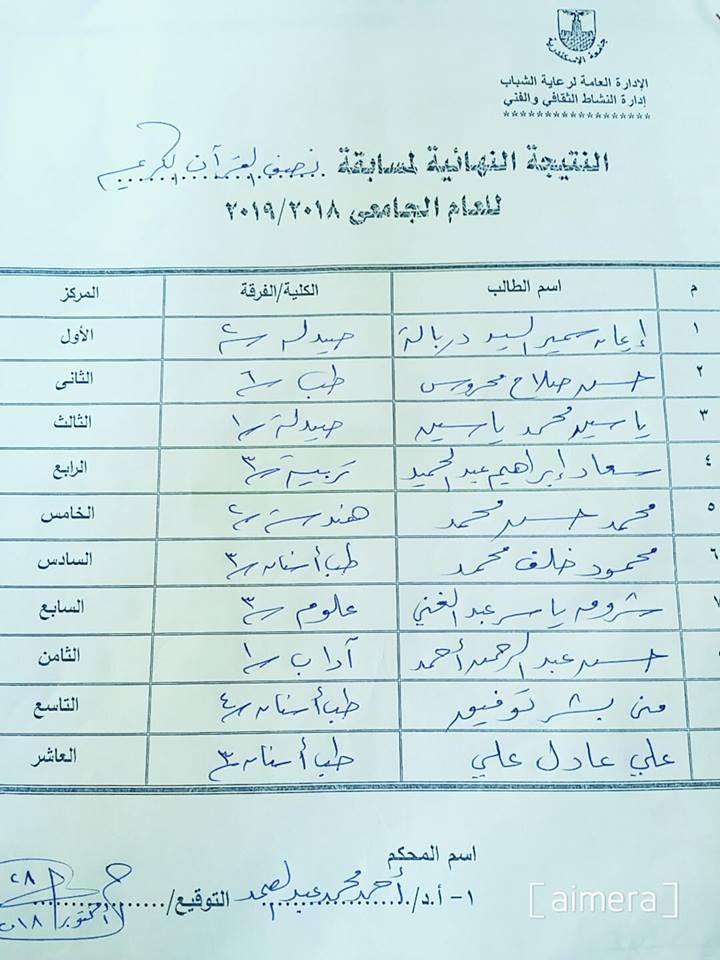 جامعة الإسكندرية
الإدارة العامة لرعاية الشباب
إدارة النشاط الثقافي والفني
******************
النتيجة النهائية لمسابقة نصف القرآن الكريم
للعام الجامعى ٢٠١٩/٢٠١٨
م اسم الطالب الكلية/الفرقة المركز
١ إيمان سمير السيد دربالة صيدلة /٢ الأول
٢ حسن صلاح محروس طب /٦ الثانى
٣ ياسين محمد ياسين صيدلة /١ الثالث
٤ سعاد إبراهيم عبد الحميد تربية /٣ الرابع
٥ محمد حسن محمد هندسة /٢ الخامس
٦ محمود خلف محمد طب أسنان /٣ السادس
٧ شروق ياسر عبد الغني علوم /٣ السابع
حسن عبد الرحمن أحمد آداب /١ الثامن
منى بشر توفيق طب أسنان /٤ التاسع
علي عادل علي طب أسنان /٣ العاشر
اسم المحكم
١- أ.د/ أحمد محمد عبد الصمد التوقيع/
٢٨
أكتوبر ٢٠١٨
[aimera]